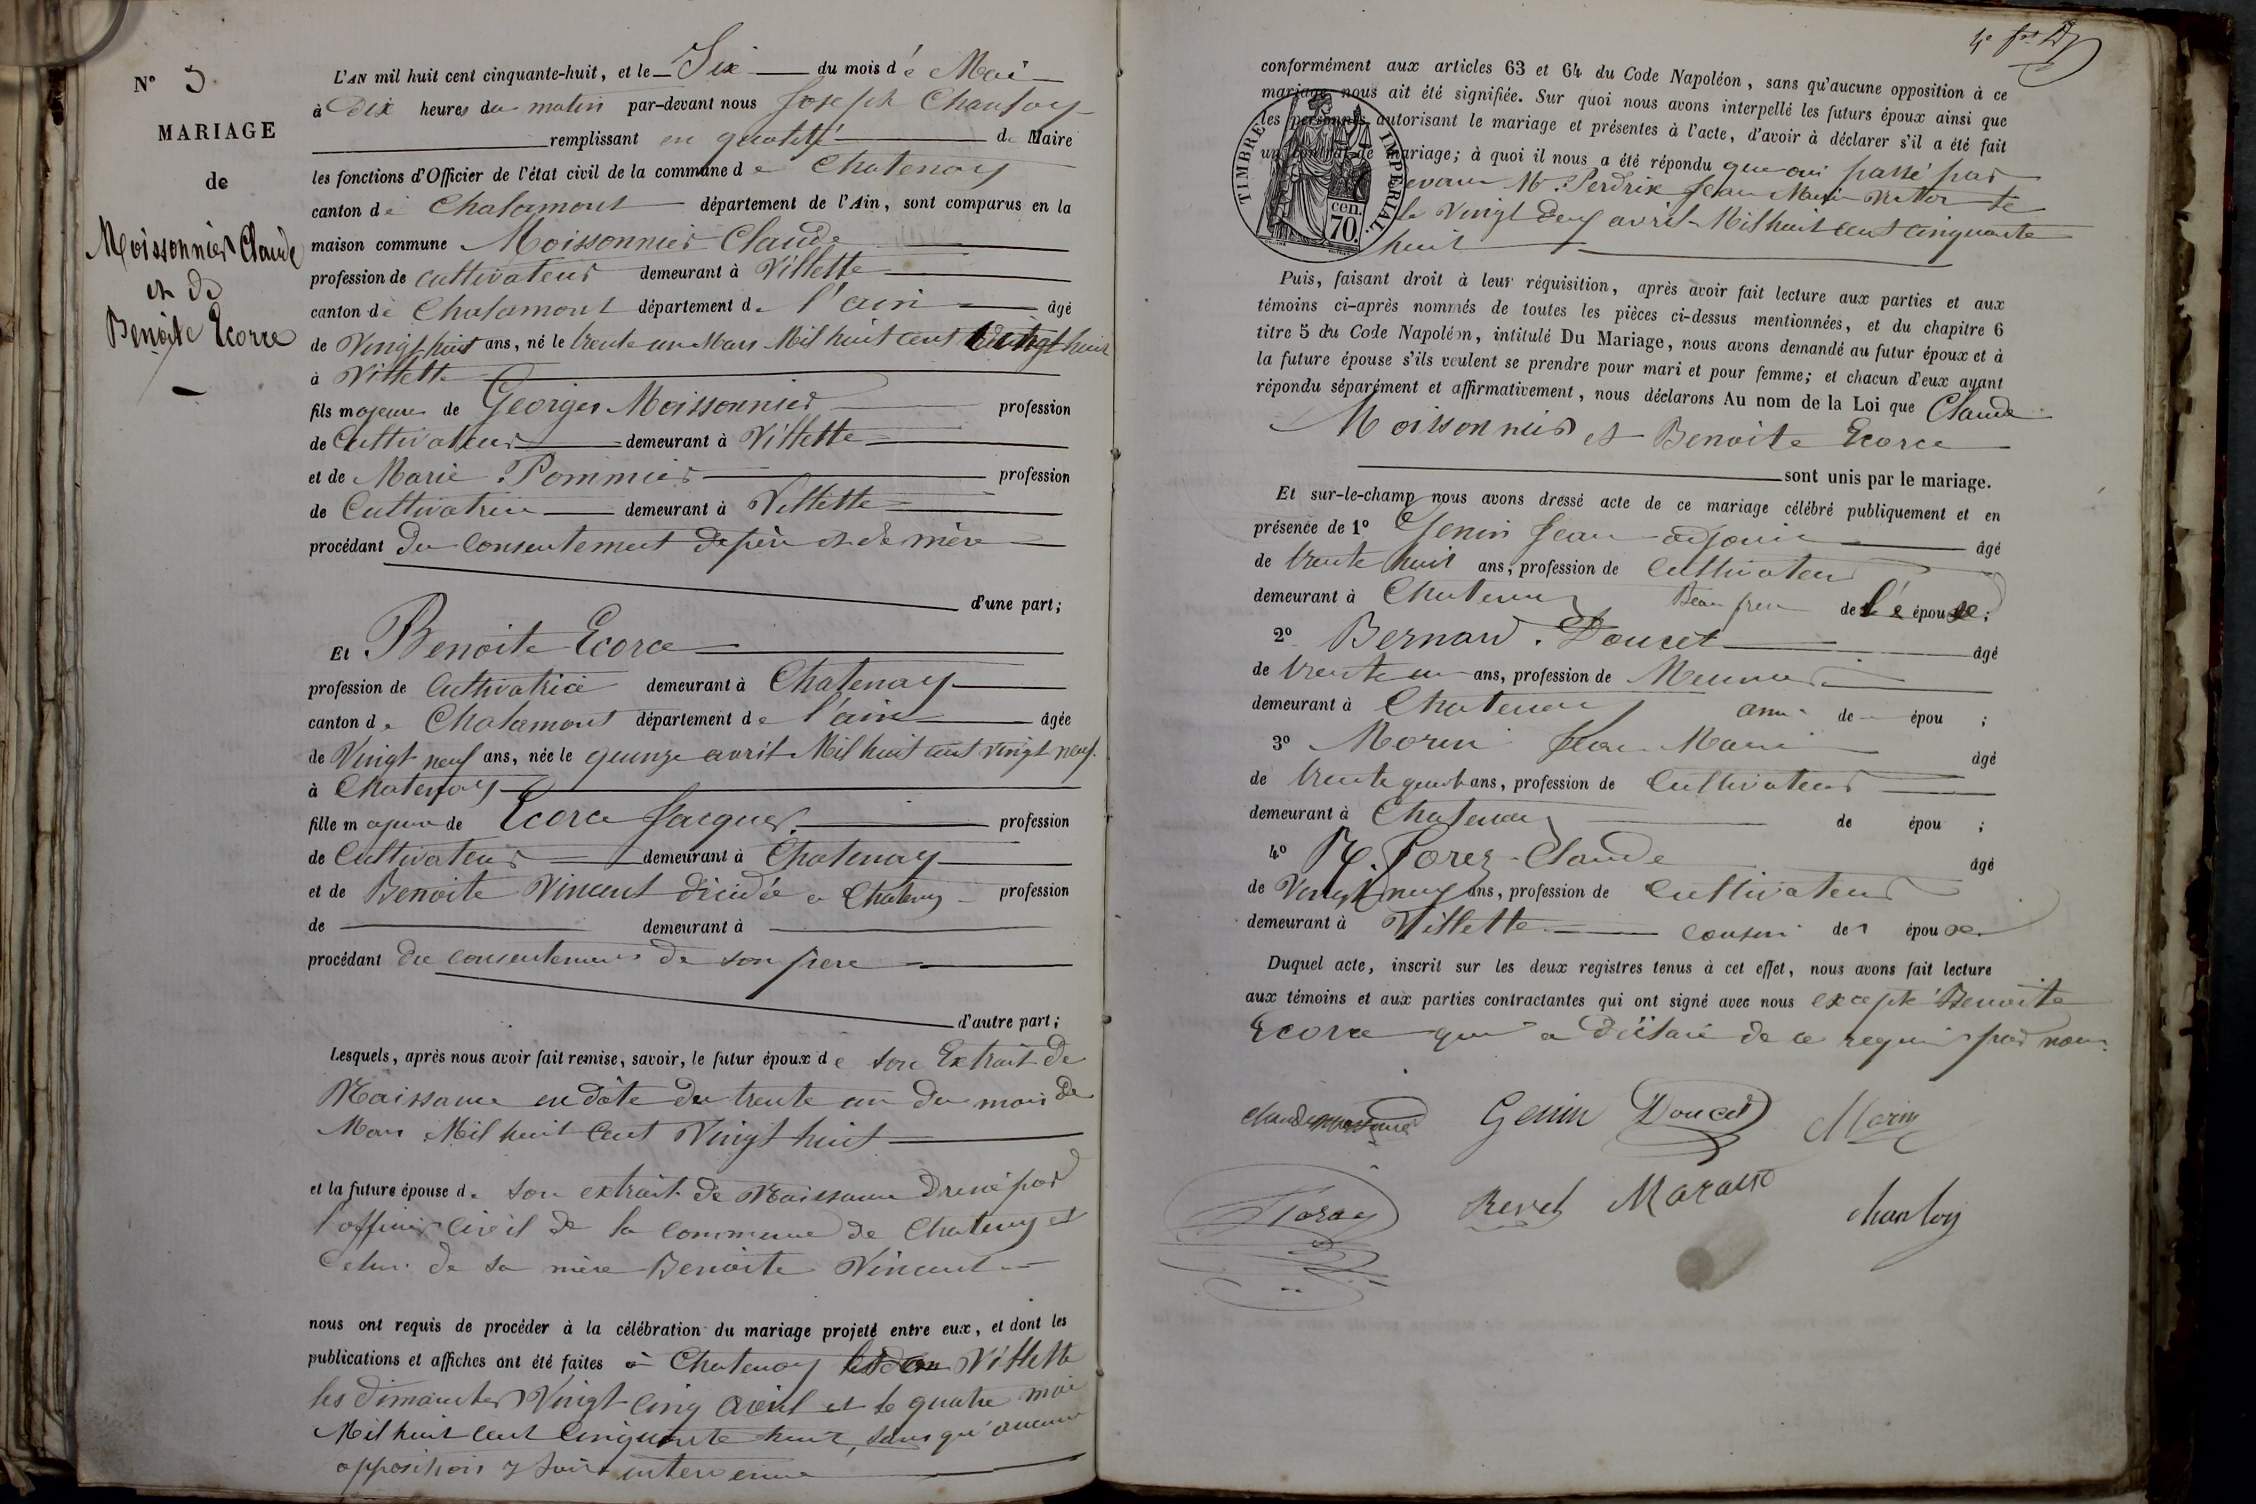 N° 3
MARIAGE
de
Moissonnier Claude
et de
Benoite Ecorce
L'AN mil huit cent cinquante-huit, et le Six du mois de Mai
à Dix heures du matin par-devant nous Joseph Chanloy
remplissant en qualité de Maire
les fonctions d'Officier de l'état civil de la commune de Chatenay
canton de Chalamont département de l'Ain, sont comparus en la
maison commune Moissonnier Claude
profession de cultivateur demeurant à Villette
canton de Chalamont département de l'ain âgé
de Vingt huit ans, né le trente un Mars Mil huit cent vingt huit
à Villette
fils majeur de Georges Moissonnier profession
de Cultivateur demeurant à Villette
et de Marie Pommier profession
de Cultivatrice demeurant à Villette
procédant du consentement de père et de mère
d'une part;
Et Benoite Ecorce
profession de Cultivatrice demeurant à Chatenay
canton de Chalamont département de l'ain âgée
de Vingt neuf ans, née le quinze avril Mil huit cent vingt neuf
à Chatenay
fille majeure de Ecorce Jacques profession
de Cultivateur demeurant à Chatenay
et de Benoite Vincent décédée à Chatenay profession
de demeurant à
procédant du consentement de son père
d'autre part;
Lesquels, après nous avoir fait remise, savoir, le futur époux de son Extrait de
Naissance en date du trente un du mois de
Mars Mil huit Cent Vingt huit
et la future épouse de son extrait de Naissance Dressé par
l'officier civil de la commune de Chatenay et
Celui de sa mère Benoite Vincent
nous ont requis de procéder à la célébration du mariage projeté entre eux, et dont les
publications et affiches ont été faites à Chatenay Villette
les dimanches Vingt Cinq Avril et le quatre mai
Mil huit Cent Cinquante huit, sans qu'aucune
opposition y soit intervenue
conformément aux articles 63 et 64 du Code Napoléon, sans qu'aucune opposition à ce
mariage nous ait été signifiée. Sur quoi nous avons interpellé les futurs époux ainsi que
les personnes autorisant le mariage et présentes à l'acte, d'avoir à déclarer s'il a été fait
un contrat de mariage; à quoi il nous a été répondu que oui passé par
devant Me Perdrix Jean Marie Notor le
le Vingt Deux avril Mil huit cent cinquante
huit
TIMBRE IMPERIAL.
cen.
70.
Puis, faisant droit à leur réquisition, après avoir fait lecture aux parties et aux
témoins ci-après nommés de toutes les pièces ci-dessus mentionnées, et du chapitre 6
titre 5 du Code Napoléon, intitulé Du Mariage, nous avons demandé au futur époux et à
la future épouse s'ils veulent se prendre pour mari et pour femme; et chacun d'eux ayant
répondu séparément et affirmativement, nous déclarons Au nom de la Loi que Claude
Moissonnier et Benoite Ecorce
sont unis par le mariage.
Et sur-le-champ nous avons dressé acte de ce mariage célébré publiquement et en
présence de 1° Genin Jean adjoint âgé
de trente huit ans, profession de Cultivateur
demeurant à Chatenay Beau frere de l'é épouse;
2° Bernard Doucet âgé
de trente un ans, profession de Meunier
demeurant à Chatenay ami de épou ;
3° Morin Jean Marie âgé
de trente quatre ans, profession de Cultivateur
demeurant à Chatenay de épou ;
4° Claude âgé
de Vingt neuf ans, profession de Cultivateur
demeurant à Villette cousin de épouse
Duquel acte, inscrit sur les deux registres tenus à cet effet, nous avons fait lecture
aux témoins et aux parties contractantes qui ont signé avec nous excepté Benoite
Ecorce qui a Déclaré de ce requis par nous
Genin Doucet Morin
Revel Chanloy